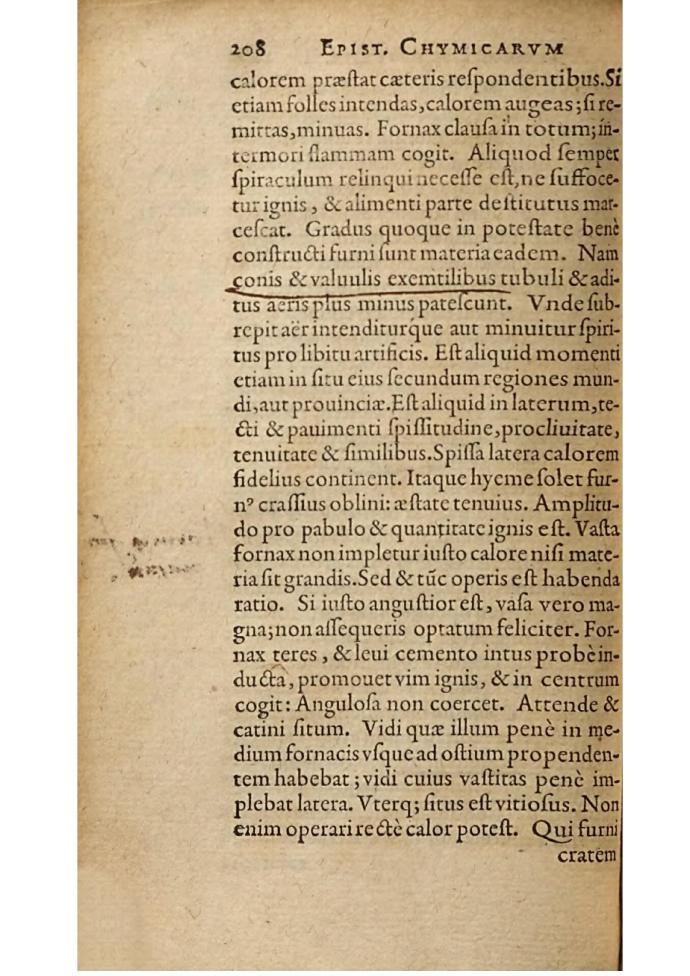 208 EPIST. CHYMICARVM
calorem præſtat cæteris reſpondentibus. Si
etiam folles intendas, calorem augeas; ſi re-
mittas, minuas. Fornax clauſa in totum; in-
termori flammam cogit. Aliquod ſemper
ſpiraculum relinqui neceſſe eſt, ne ſuffoce-
tur ignis, & alimenti parte deſtitutus mar-
ceſcat. Gradus quoque in poteſtate benè
conſtructi furni ſunt materia eadem. Nam
conis & valuulis exemtilibus tubuli & adi-
tus aeris plus minus pateſcunt. Vnde ſub-
repit aër intenditurq́ue aut minuitur ſpiri-
tus pro libitu artificis. Eſt aliquid momenti
etiam in ſitu eius ſecundum regiones mun-
di, aut prouinciæ. Eſt aliquid in laterum, te-
cti & pauimenti ſpiſſitudine, procliuitate,
tenuitate & ſimilibus. Spiſſa latera calorem
fidelius continent. Itaque hyeme ſolet fur-
nꝰ craſſius oblini: æſtate tenuius. Amplitu-
do pro pabulo & quantitate ignis eſt. Vaſta
fornax non impletur iuſto calore niſi mate-
ria ſit grandis. Sed & tūc operis eſt habenda
ratio. Si iuſto anguſtior eſt, vaſa vero ma-
gna; non aſſequeris optatum feliciter. For-
nax teres, & leui cemento intus probè in-
ducta, promouet vim ignis, & in centrum
cogit: Anguloſa non coercet. Attende &
catini ſitum. Vidi quæ illum penè in me-
dium fornacis vſque ad oſtium propenden-
tem habebat; vidi cuius vaſtitas penè im-
plebat latera. Vterq; ſitus eſt vitioſus. Non
enim operari rectè calor poteſt. Qui furni
cratem